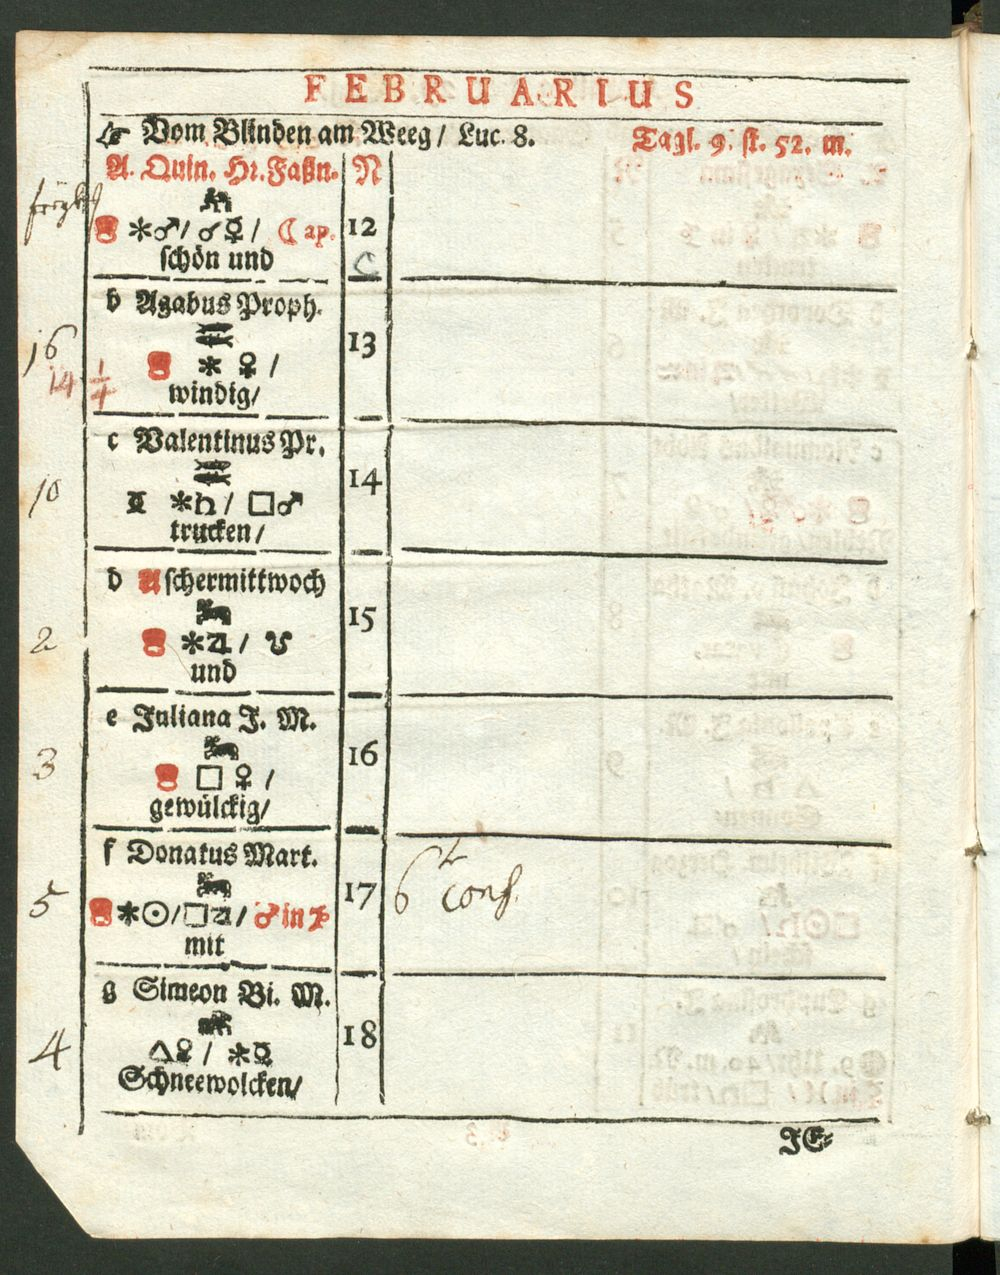 FEBRUARIUS
Vom Blinden am Weeg / Luc. 8. Tagl. 9. st. 52. m.
A. Quin. Hr. Faßn. N
⚹♂ / ☌☿ / ☾ ap. 12
schön und C
b Agabus Proph.
16 13
14 1/4 ⚹ ♀ /
windig /
c Valentinus Pr.
10 14
⚹♄ / □♂
trucken /
d Aschermittwoch
15
2 ⚹♃ / ☋
und
e Juliana J. M.
16
3 □ ♀ /
gewülckig /
f Donatus Mart.
5 17 6
⚹☉ / □♃ / ♂ in
mit
g Simeon Bi. M.
18
4 △♀ / ⚹☿
Schneewolcken /
JE-